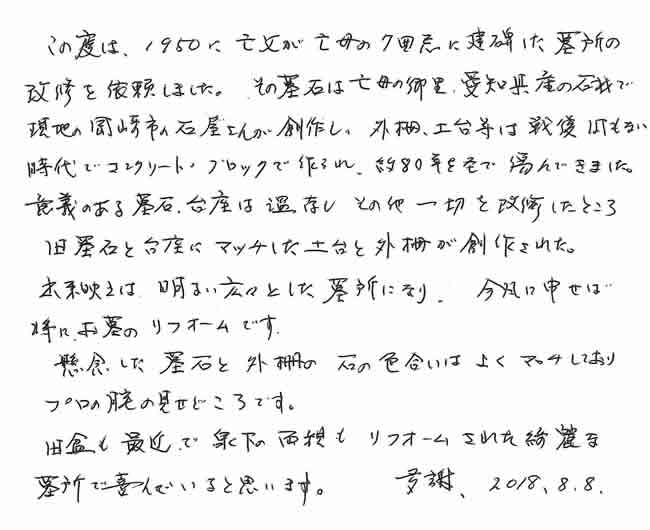 この度は、1950に亡父が亡母の7回忌に建碑した墓所の
改修を依頼しました。その墓石は亡母の郷里、愛知県産の石材で
現地の岡崎市の石屋さんが創作し、外柵、土台等は戦後間もない
時代でコンクリート・ブロックで作られ、約80年を経て傷んできました。
意義のある墓石、台座は温存し その他一切を改修したところ
旧墓石と台座にマッチした土台と外柵が創作された。
出来映えは 明るい広々とした墓所になり、今風に申せば
将に お墓のリフォームです。
懸念した墓石と外柵の石の色合いはよくマッチしており
プロの腕の見せどころです。
旧盆も最近で泉下の両親もリフォームされた綺麗な
墓所で喜んでいると思います。 多謝、2018.8.8.